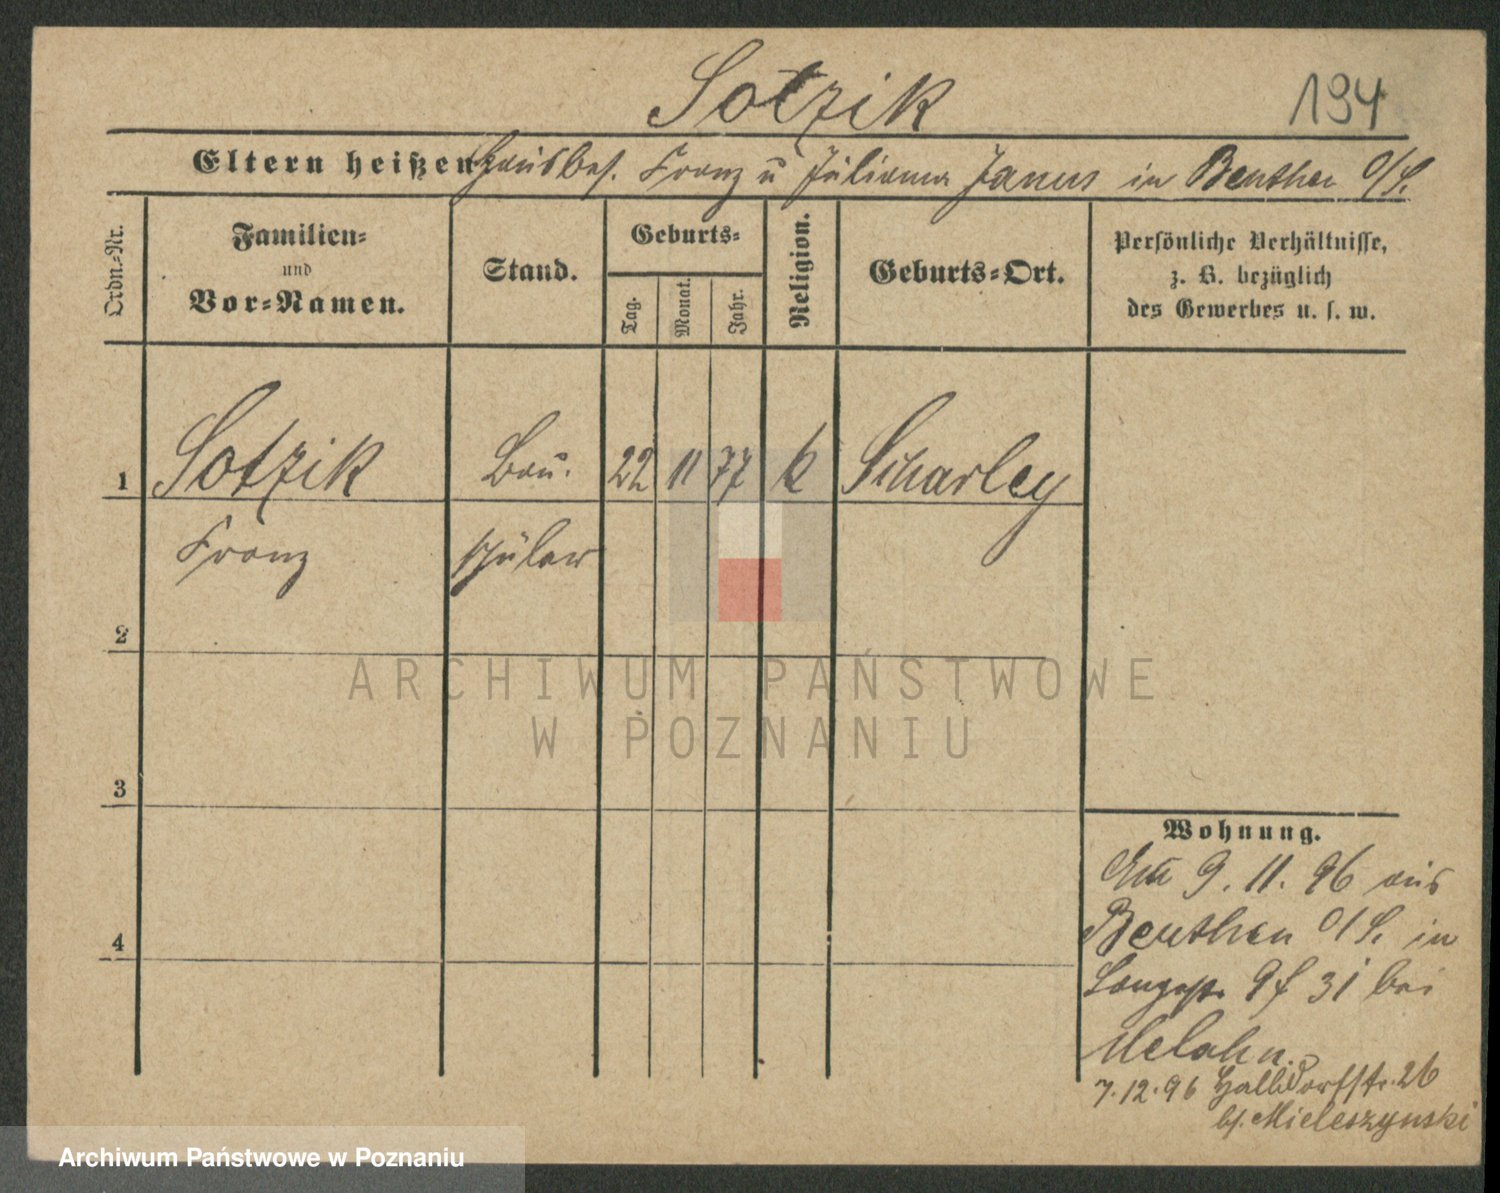 Sotzik
194
Eltern heißen Hausbes. Franz u Juliana Janus in Beuthen O/S.
Ordn.-Nr.
Familien-
und
Vor-Namen.
Stand.
Geburts-
Tag.
Monat.
Jahr.
Religion.
Geburts-Ort.
Persönliche Verhältnisse,
z. B. bezüglich
des Gewerbes u. s. w.
1 Sotzik Bau. 22 11 77 k Scharley
Franz schüler
2
3
4
Wohnung.
Am 9. 11. 96 aus
Beuthen O/S. in
Langestr. 9 31 bei
Melahn.
7.12.96 Halbdorfstr. 26
bs. Mieleszynski
ARCHIWUM PAŃSTWOWE
W POZNANIU
Archiwum Państwowe w Poznaniu